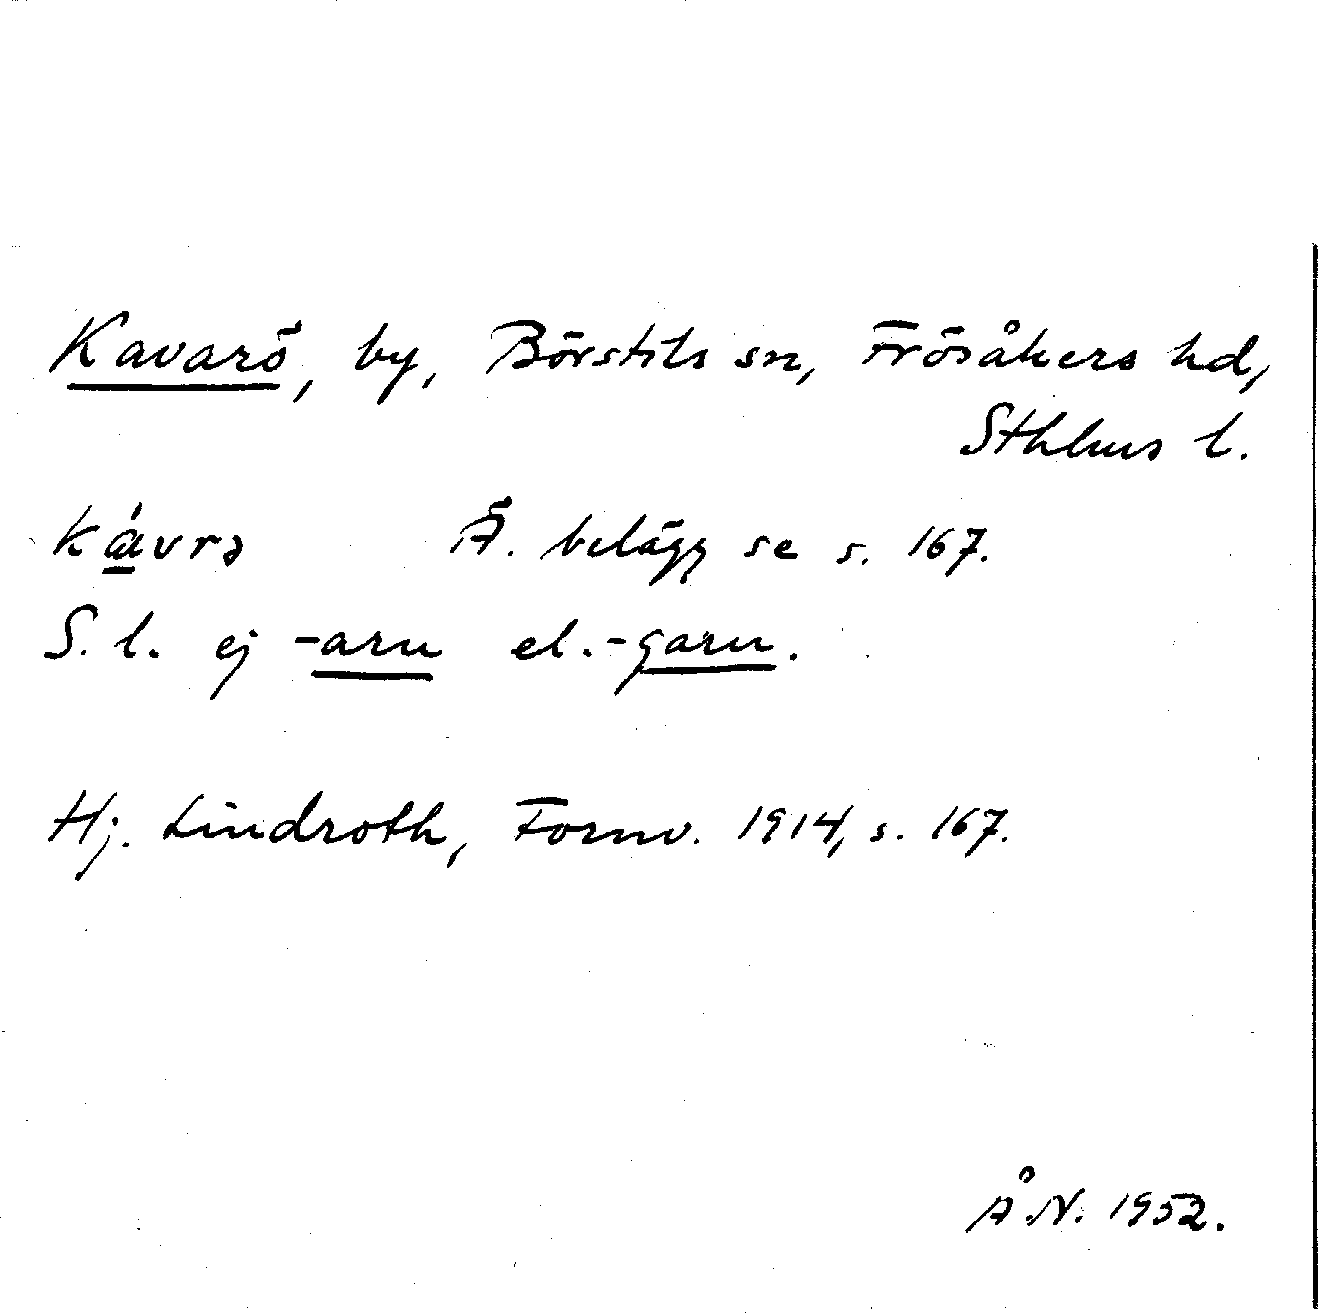 Kavarö, by, Börstils sn, Frösåkers hd,
Sthlms l.
kávrə Ä. belägg se s. 167.
S. l. ej -aru el. -garn.
Hj. Lindroth, Fornv. 1914, s. 167.
Å.N. 1952.